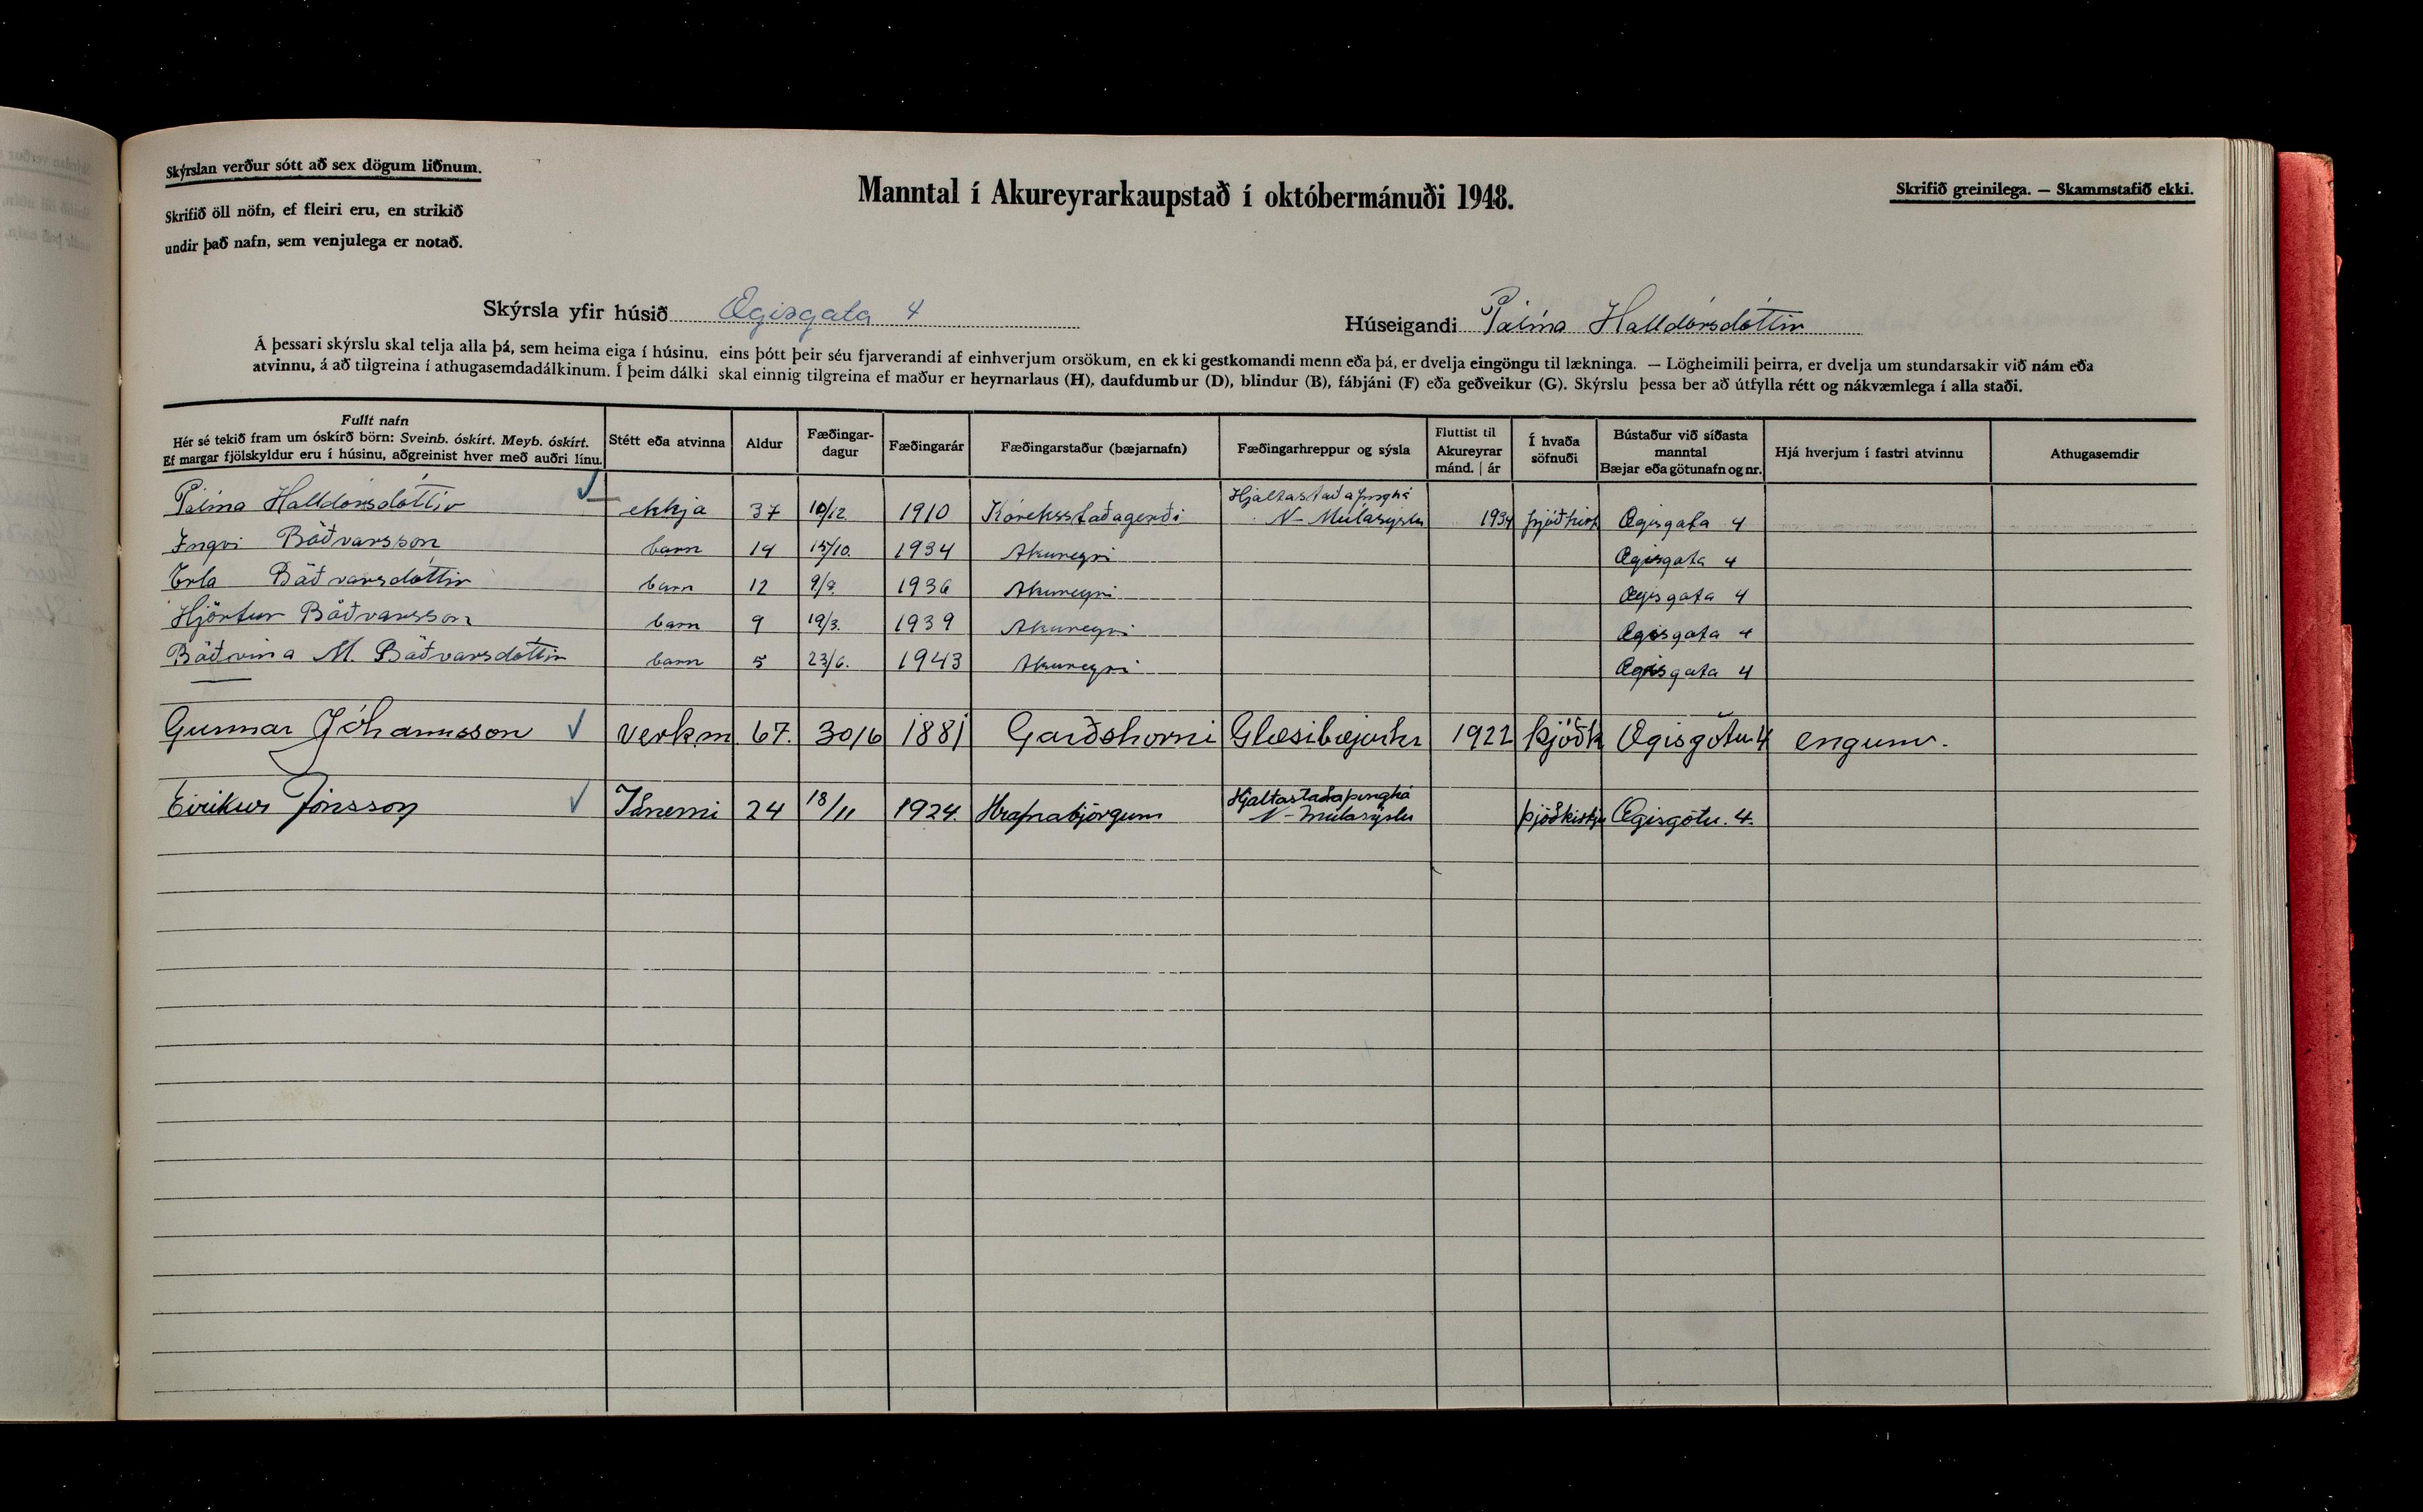 Skýrslan verður sótt að sex dögum liðnum.
Skrifið öll nöfn, ef fleiri eru, en strikið
undir það nafn, sem venjulega er notað.
Manntal í Akureyrarkaupstað í októbermánuði 1948.
Skrifið greinilega. — Skammstafið ekki.
Skýrsla yfir húsið Ægisgata 4
Húseigandi Pálína Halldórsdóttir
Á þessari skýrslu skal telja alla þá, sem heima eiga í húsinu, eins þótt þeir séu fjarverandi af einhverjum orsökum, en ekki gestkomandi menn eða þá, er dvelja eingöngu til lækninga. — Lögheimili þeirra, er dvelja um stundarsakir við nám eða
atvinnu, á að tilgreina í athugasemdadálkinum. Í þeim dálki skal einnig tilgreina ef maður er heyrnarlaus (H), daufdumbur (D), blindur (B), fábjáni (F) eða geðveikur (G). Skýrslu þessa ber að útfylla rétt og nákvæmlega í alla staði.
Fullt nafn
Hér sé tekið fram um óskírð börn: Sveinb. óskírt. Meyb. óskírt.
Ef margar fjölskyldur eru í húsinu, aðgreinist hver með auðri línu.
Stétt eða atvinna
Aldur
Fæðingar-
dagur
Fæðingarár
Fæðingarstaður (bæjarnafn)
Fæðingarhreppur og sýsla
Fluttist til
Akureyrar
mánd. | ár
Í hvaða
söfnuði
Bústaður við síðasta
manntal
Bæjar eða götunafn og nr.
Hjá hverjum í fastri atvinnu
Athugasemdir
Pálína Halldórsdóttir ekkja 37 10/12. 1910 Kóreksstaðagerði Hjaltastaðaþinghá N-Múlasýslu 1934 þjóðkirk Ægisgata 4
Ingvi Böðvarsson barn 14 15/10. 1934 Akureyri Ægisgata 4
Erla Böðvarsdóttir barn 12 1936 Akureyri Ægisgata 4
Hjörtur Böðvarsson barn 9 19/3. 1939 Akureyri Ægisgata 4
Böðvina M. Böðvarsdóttir barn 5 23/6. 1943 Akureyri Ægisgata 4
Gunnar Jóhannsson verkm 67. 30/6 1881 Garðshorni Glæsibæjarhr 1922 þjóðk Ægisgötu 4 engum.
Eiríkur Jónsson Iðnemi 24 18/11 1924. Hrafnabjörgum Hjaltastaðaþinghá N-Múlasýslu þjóðkirkju Ægisgötu. 4.